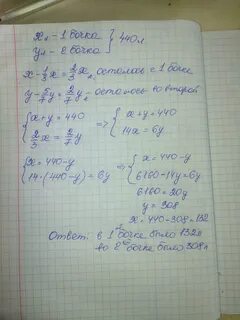 x л - 1 бочка } 440 л
y л - 2 бочка
x - 1/3 x = 2/3 x л осталось в 1 бочке
y - 5/7 y = 2/7 y л - осталось во второй
{ x + y = 440 => { x + y = 440
2/3 x = 2/7 y 14x = 6y
{ x = 440 - y => { x = 440 - y
14 · (440 - y) = 6y 6160 - 14y = 6y
6160 = 20y
y = 308
x = 440 - 308 = 132
Ответ: в 1 бочке было 132 л
во 2 бочке было 308 л